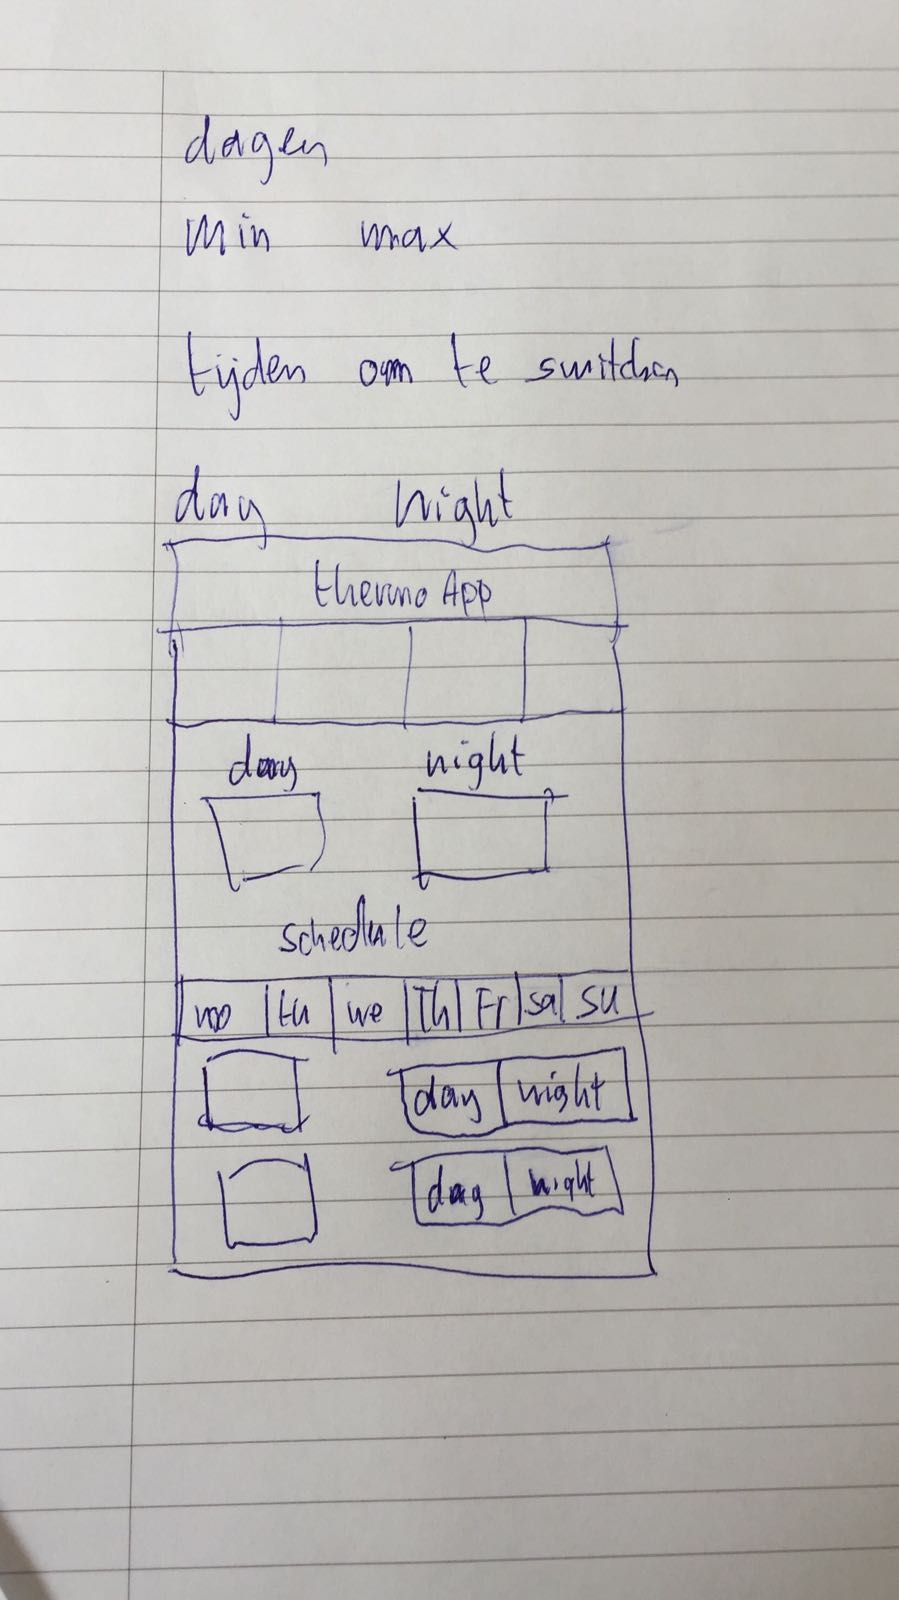 dagen
min max
tijden om te switchen
day Night
thermo App
day night
schedule
mo tu we Th Fr sa su
day night
day night